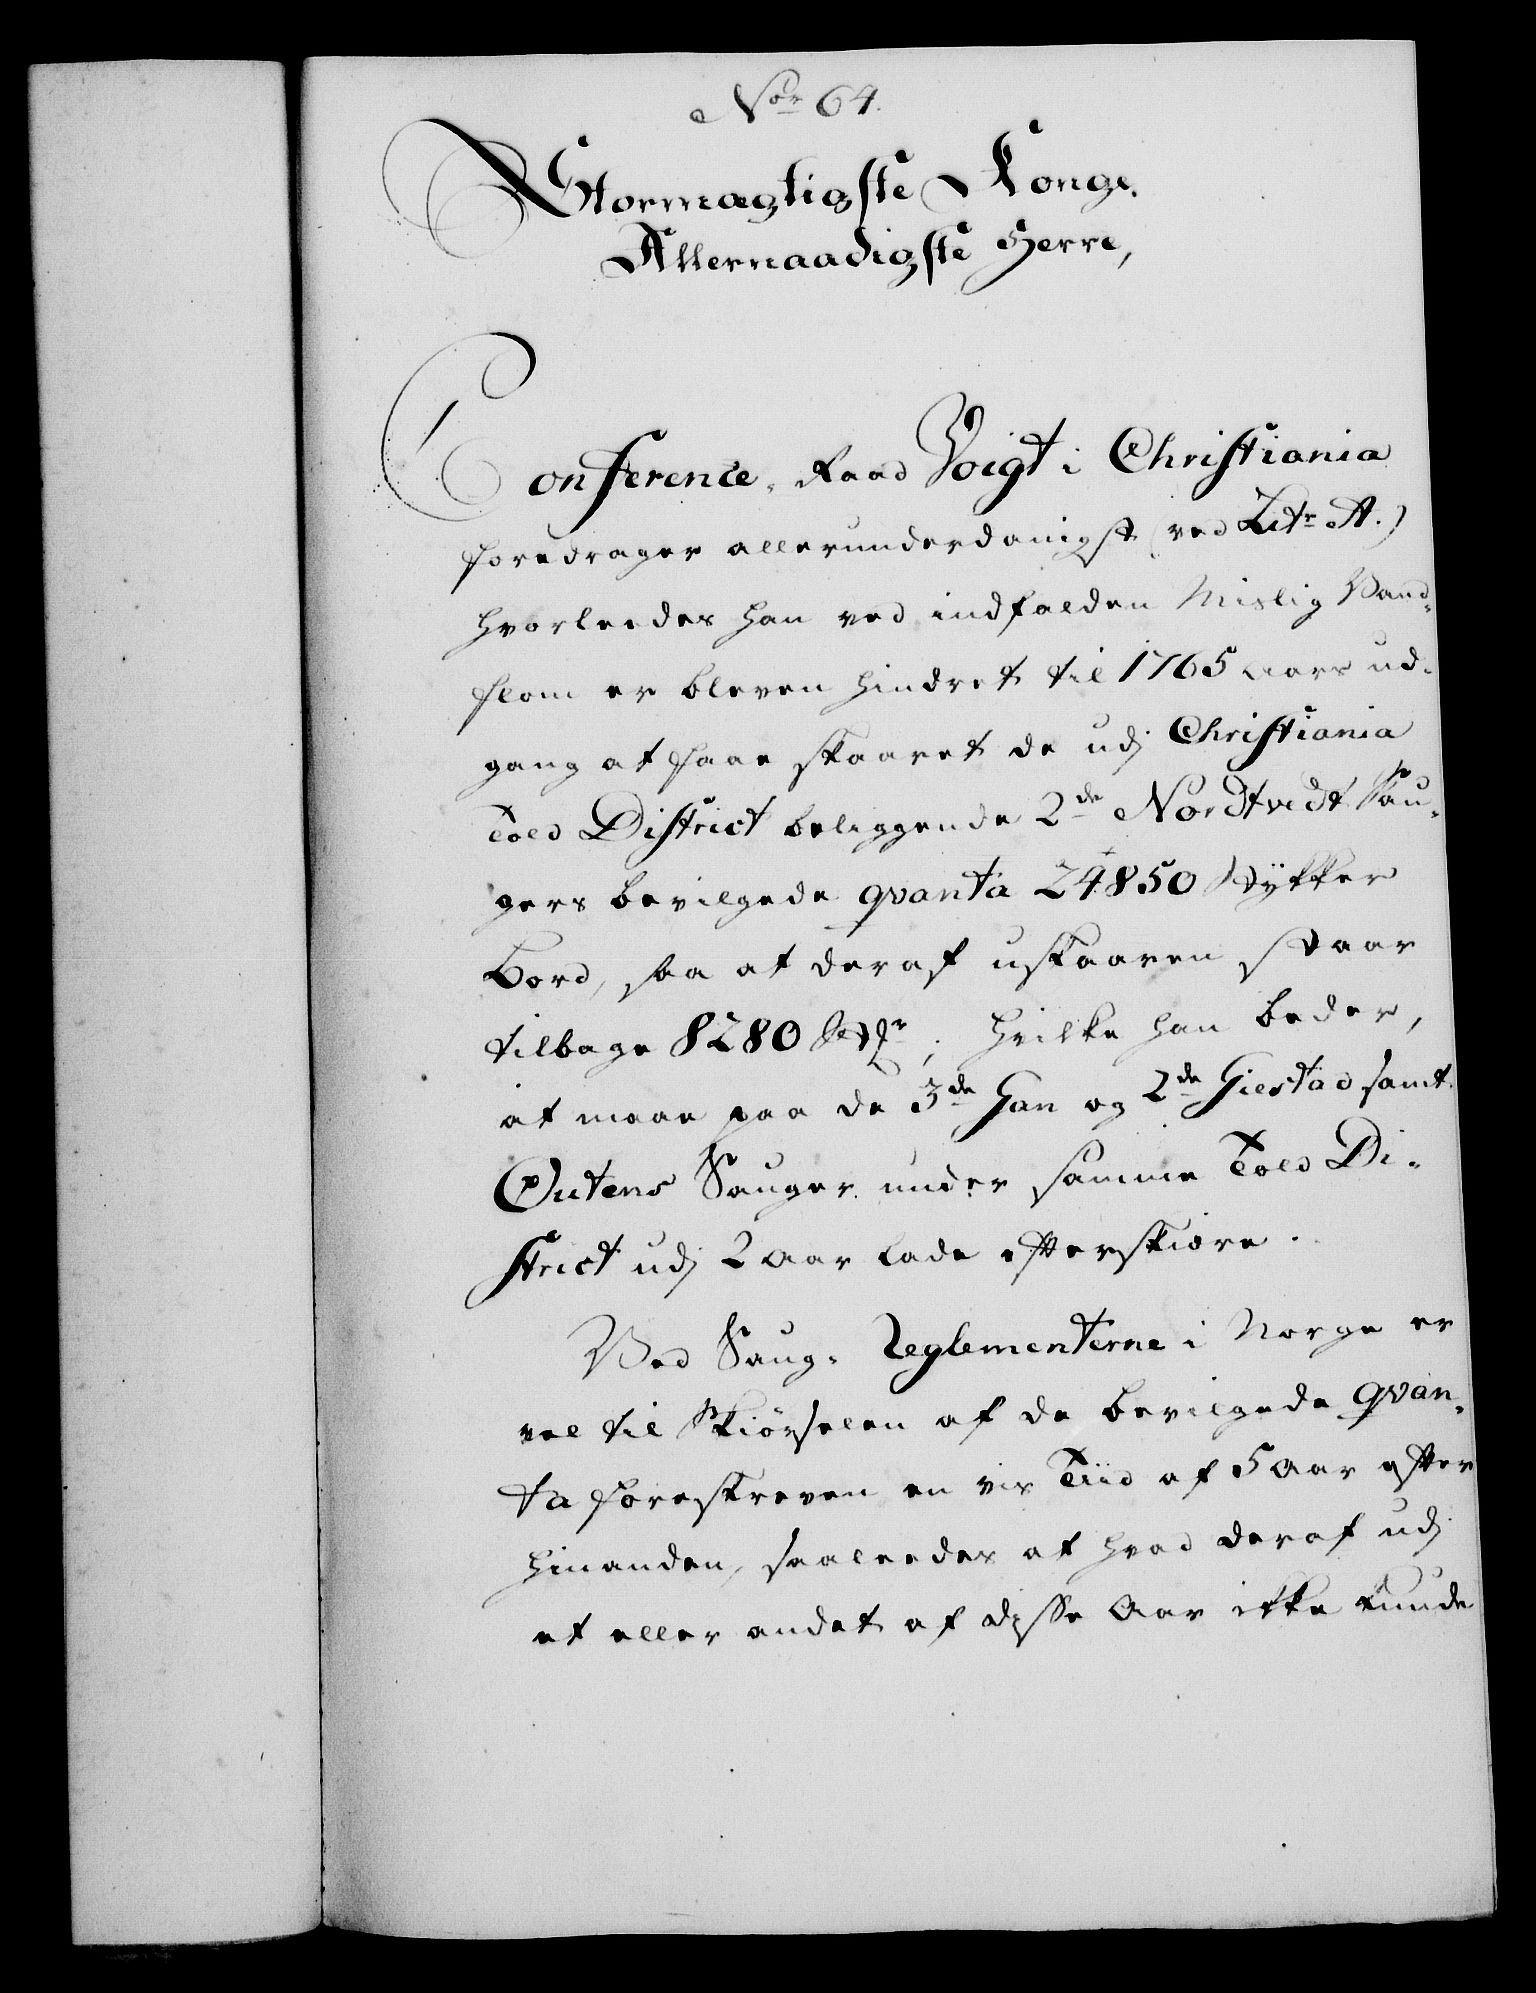 Nor 64.
Stormægtigste Konge.
Allernaadigste Herre,
Conference-Raad Voigt i Christiania
foredrager allerunderdanigst (ved Litr A.)
hvorledes han ved indfalden Mislig Vand-
flom er bleven hindret til 1765 aars ud-
gang at faae skaaret de udj Christiania
Told District beliggende 2de Nordtvedt Sau-
gers bevilgede qvanta 24850 Stykker
Bord, saa at deraf uskaaren staar
tilbage 8280 Stkr; hvilke han beder,
at maae paa de 3de Han og 2de Giestad samt
Outens Sauger under samme Told Di-
strict udj 2 Aar lade efterskiøre.
Ved Saug-Reglementerne i Norge er
vel til Skiørselen af de bevilgede qvan-
ta foreskreven en vis Tiid af 5 Aar efter
hinanden, saaleedes at hvad deraf udj
et eller andet af disse Aar ikke kunde